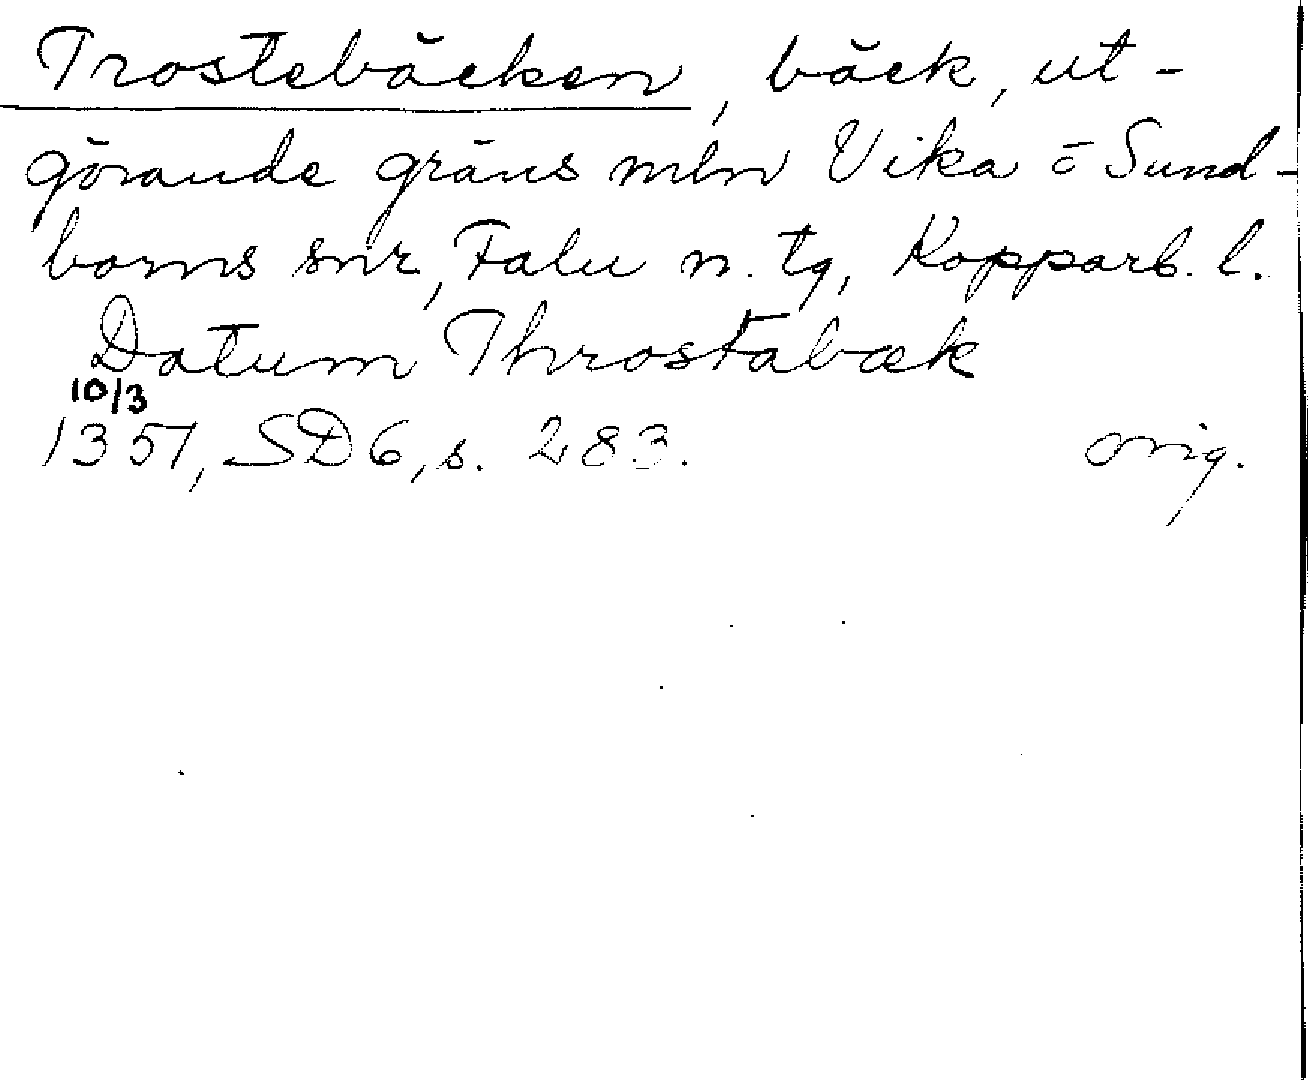 Trostebäcken, bäck, ut-
görande gräns mln Vika o Sund-
borns snr, Falu n. tg, Kopparb. l.
Datum Throstabæk
10/3
1351, SD6, s. 283. orig.